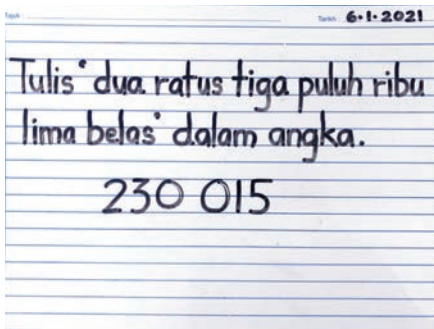 Tajuk Tarikh 6·1·2021
Tulis ‘dua ratus tiga puluh ribu
lima belas’ dalam angka.
230 015